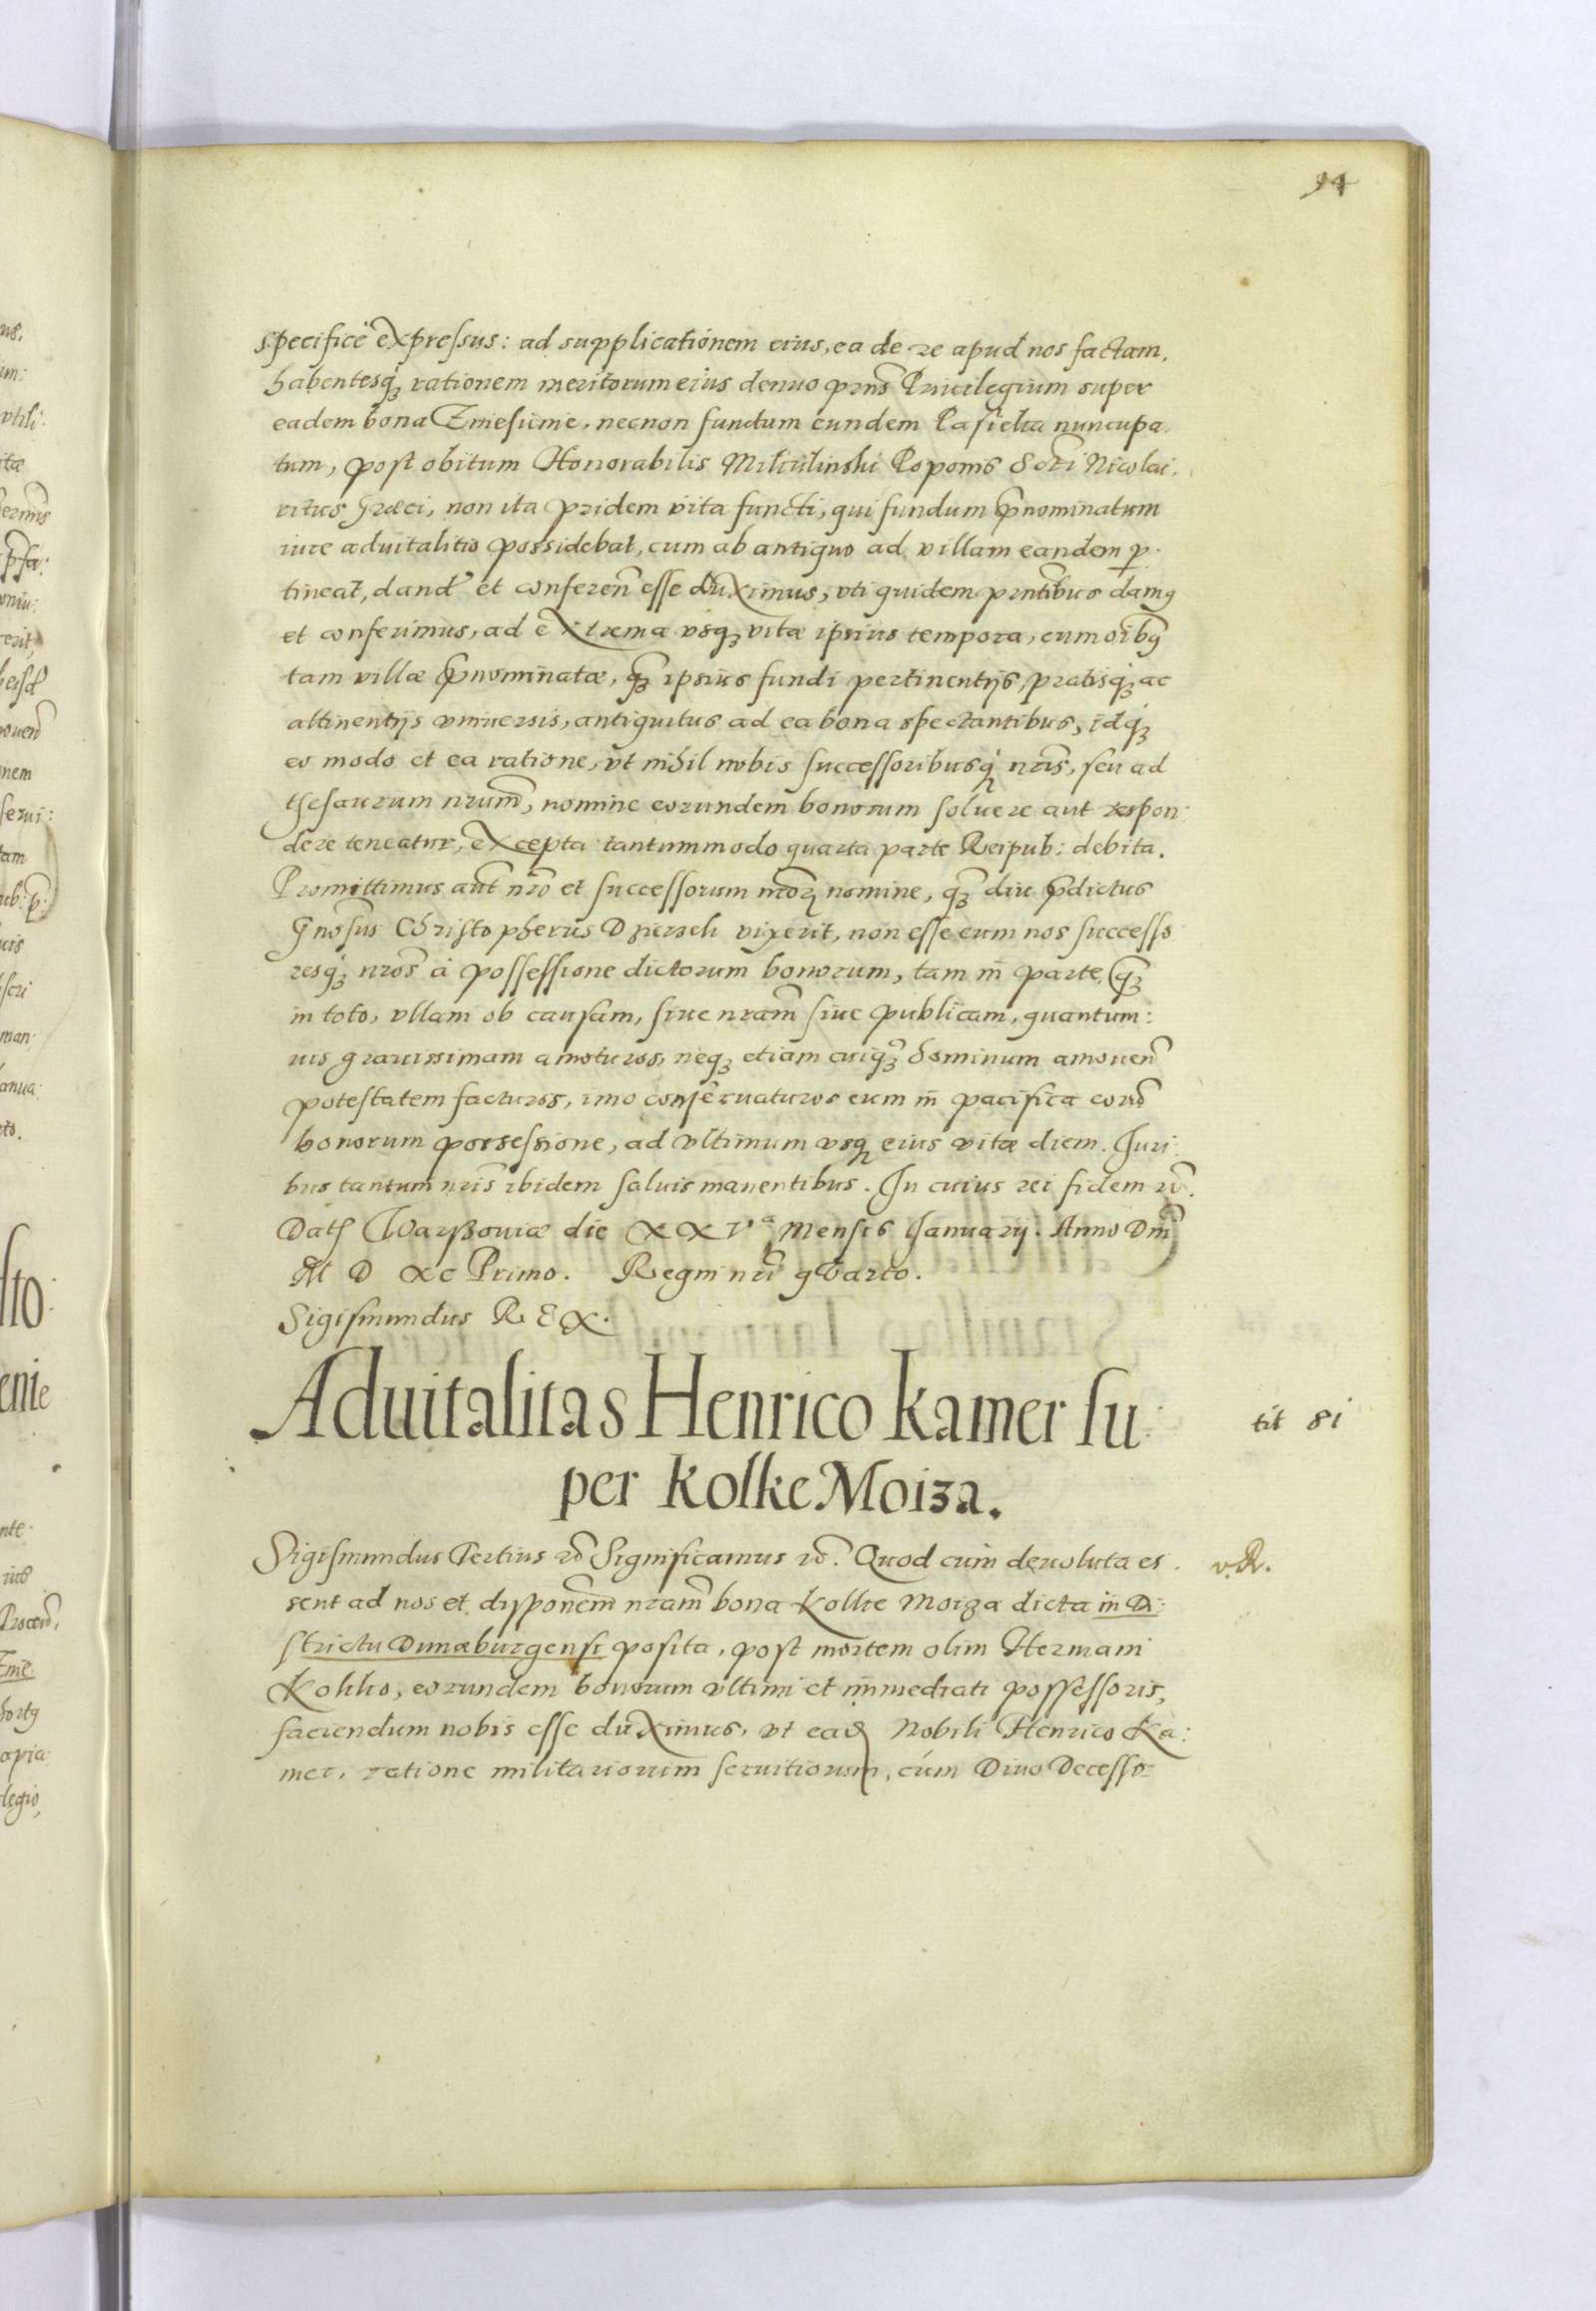 94
specificè expressus: ad supplicationem eius, ea de re apud nos factam,
habentesq; rationem meritorum eius denuo prñs Priuilegium super
eadem bona necnon fundum eundem nuncupa
tum, post obitum Honorabilis Poponis Nicolai,
ritus Græci, non ita pridem vita functi, qui fundum prænominatum
iure aduitalitio possidebat, cum ab antiquo ad villam eandem p̱
tineat, dand' et conferen̄ esse duximus, vti quidem prntībus damꝰ
et conferimus, ad extrema vsq; vitæ ipsius tempora, cum oībꝰ
tam villæ prænominatæ, qȝ ipsius fundi pertinentijs, pratisq; ac
attinentijs vniuersis, antiquitus ad ea bona spectantibus, idq;
eo modo et ea ratione, vt nihil nobis successoribusq; nrīs, seu ad
thesaurum nrum̄, nomine eorundem bonorum soluere aut respon:
dere teneatur, excepta tantummodo quarta parte Reipub: debita.
Promittimus aūt nrō et successorum nrōꝝ nomine, qȝ diu prædictus
Gnōsus Christopherus vixerit, non esse eum nos successo
resq; nrōs à possessione dictorum bonorum, tam in parte, qȝ
in toto, vllam ob causam, siue nrām siue publicam, quantum:
uis grauissimam amoturos, neq; etiam cuiqȝ hominum amouen̄
potestatem facturos, imo conseruaturos eum in pacifica eorū
bonorum possessione, ad vltimum vsq; eius vitæ diem. Juri:
bus tantum nrīs ibidem saluis manentibus. In cuius rei fidem rc̄.
Datꝭ Warßouiæ die XXVª Mensis Januarij. Anno Dnī
M D XC Primo. Regni nrī qVarto.
Sigismundus REX.
Aduitalitas Henrico Kamer su:
per Kolke Moiza.
tit 81
Sigismundus Tertius rc̄ Significamus rc̄. Quod cum deuoluta es
v. R.
sent ad nos et disponēm nrām bona Kolke Moiza dicta in Di:
strictu Dunæburgensi posita, post mortem olim Hermani
Kohko, eorundem bonorum vltimi et immediati possessoris,
faciendum nobis esse duximus, vt eaꝺ Nobili Henrico Ka:
mer, ratione militariorum seruitiorum, cum Diuo Decesso